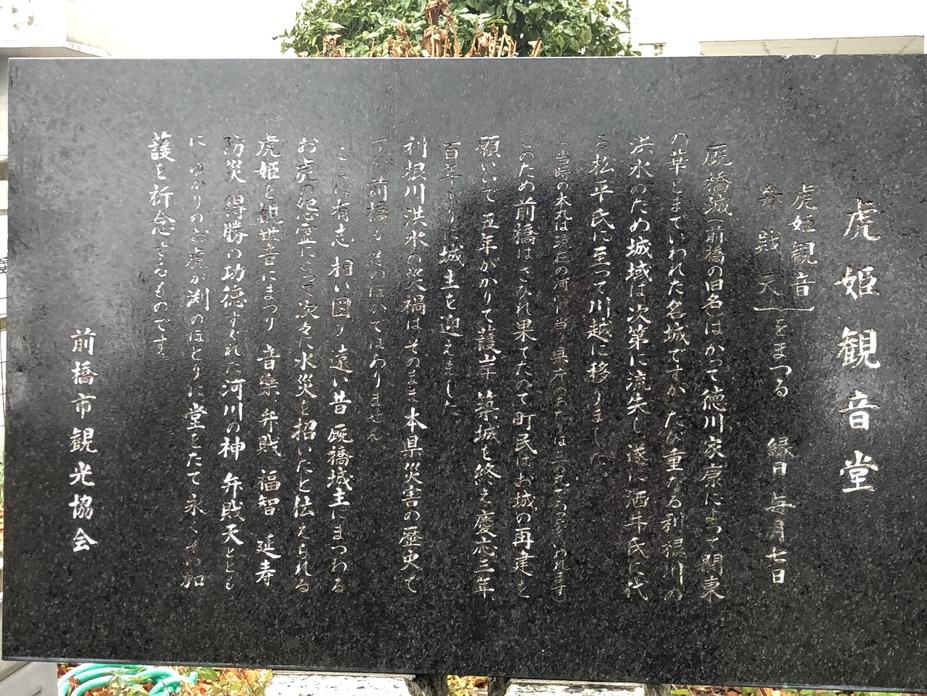 虎姫観音堂
虎姫観音
弁戝天
をまつる 縁日 毎月七日
厩橋城(前橋の旧名)はかつて徳川家康によって関東
の華とまでいわれた名城ですが たび重なる利根川の
洪水のため城域は次第に流失し 遂に酒井氏に代
る松平氏に至って川越に移りました
このため前橋はさびれ果てたので町民はお城の再建を
願いいて 五年がかりで護岸 築城を終え慶応三年
百年ぶりに城主を迎えました
利根川洪水の災禍はそのまま本県災害の歴史で
すが 前橋も
ここに有志 相い図り 遠い昔 厩橋城主にまつわる
お虎の怨霊によって次々に水災を招いたと伝えられる
虎姫を観世音にまつり 音楽 弁戝 福智 延寿
防災 得勝の功徳すぐれた河川の神 弁戝天ととも
に ゆかりのお虎が渕のほとりに堂をたて永くその加
護を祈念するものです
前橋市観光協会